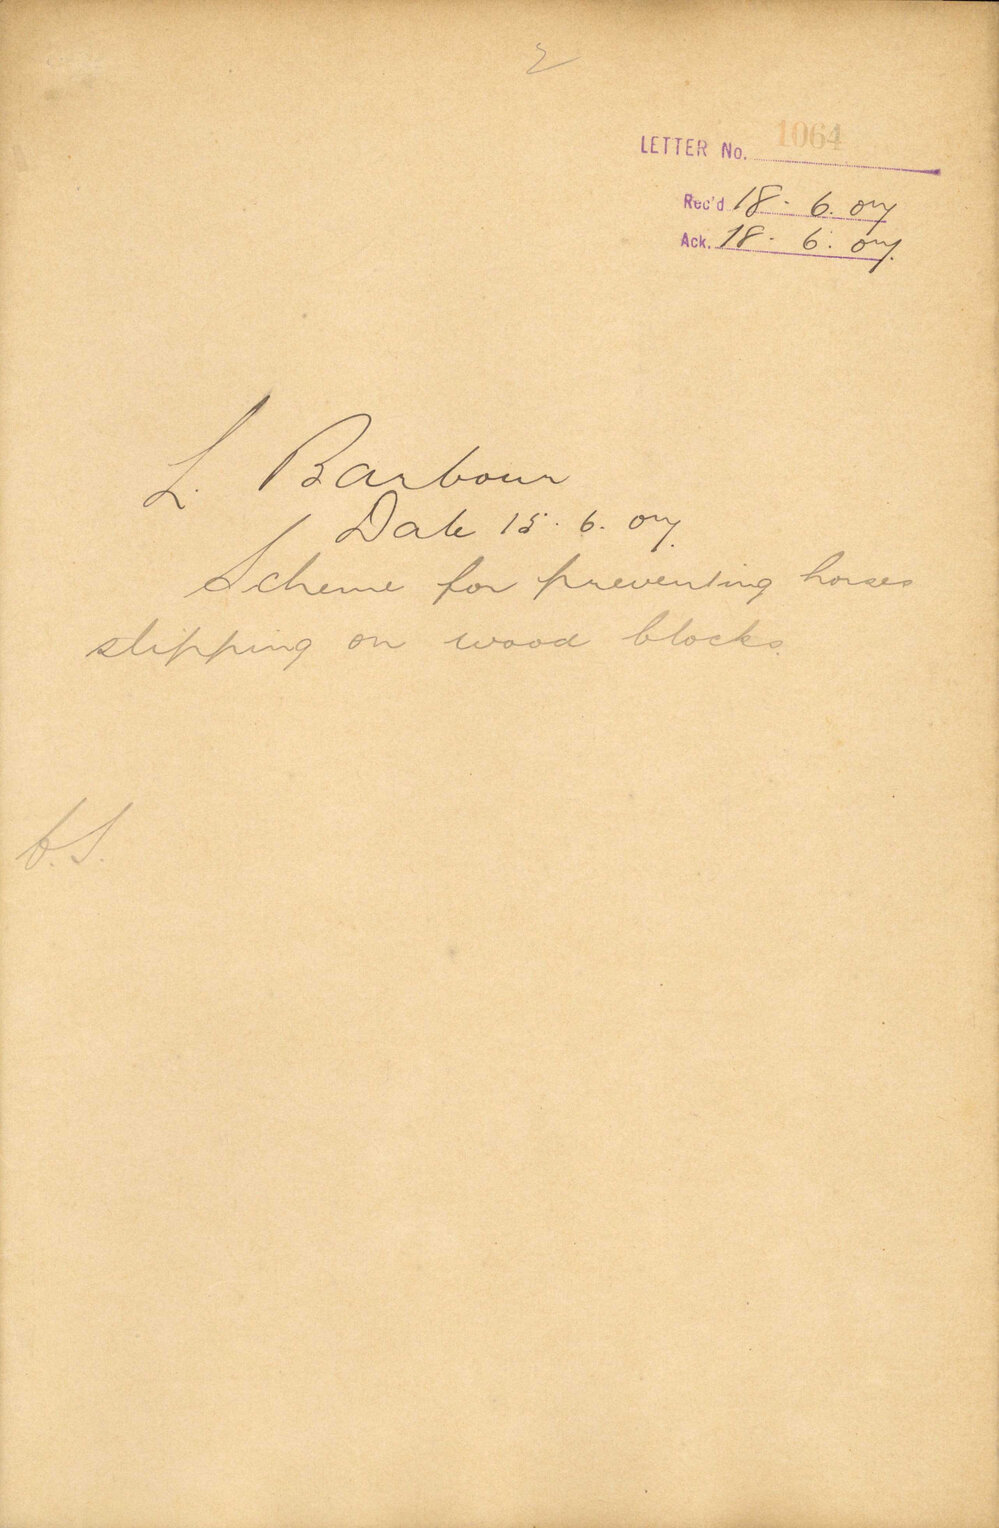 2
LETTER No. 1064
Rec'd 18. 6. 07
Ack. 18. 6. 07.
L. Barbour
Date 15. 6. 07.
Scheme for preventing horses
slipping on wood blocks.